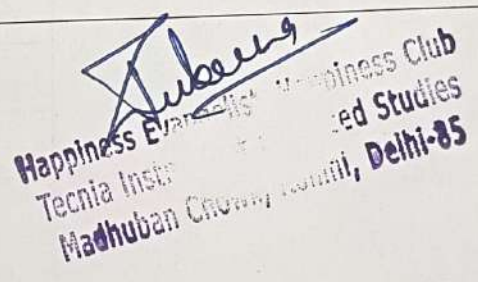 Happiness Evangelist Happiness Club
Tecnia Inst ed Studies
Madhuban Chowk, Rohini, Delhi-85